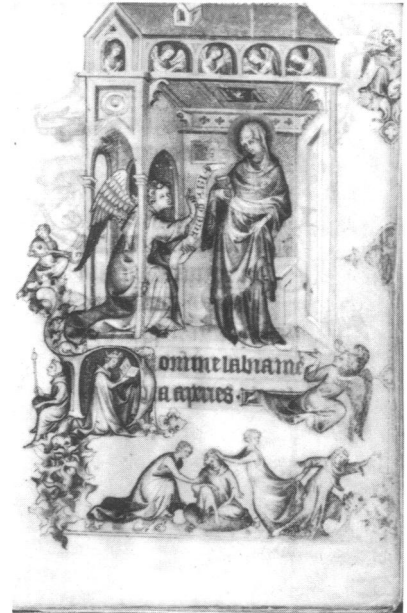 Domine labia me
a aperies